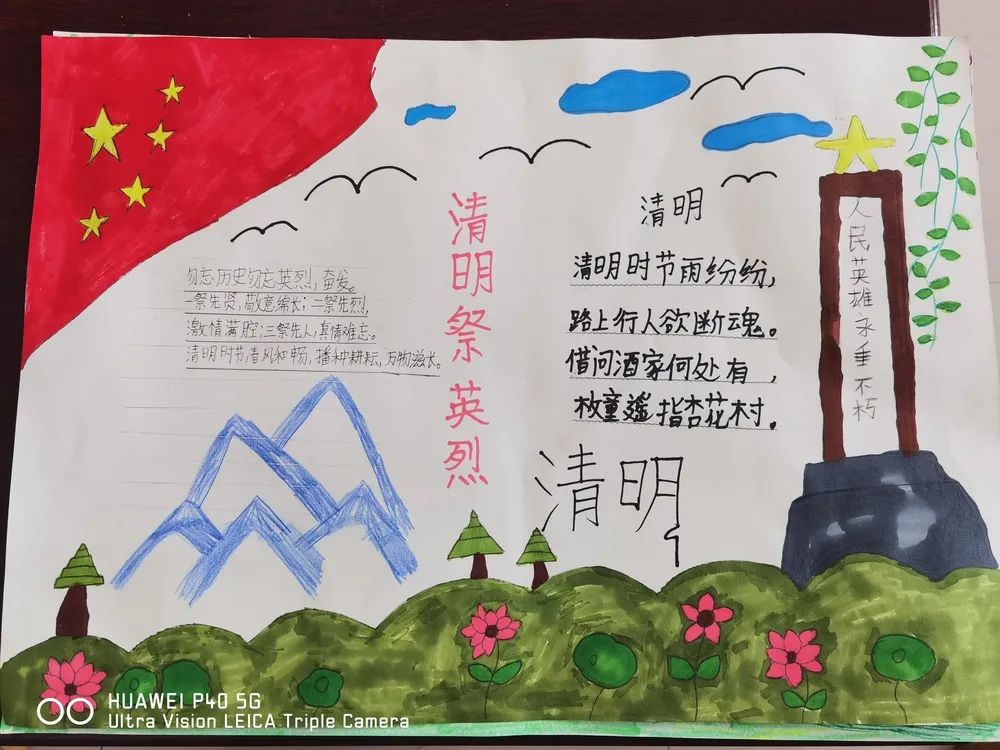 勿忘历史勿忘英烈，奋发。
一祭先贤，敬意绵长；二祭先烈，
激情满腔；三祭先人，真情难忘。
清明时节，春风和畅，播种耕耘，万物滋长。
清明祭英烈
清明
清明时节雨纷纷，
路上行人欲断魂。
借问酒家何处有，
牧童遥指杏花村。
清明
人民英雄永垂不朽
HUAWEI P40 5G
Ultra Vision LEICA Triple Camera